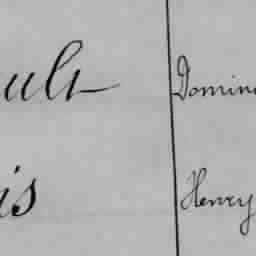 ult Domin
is Henry